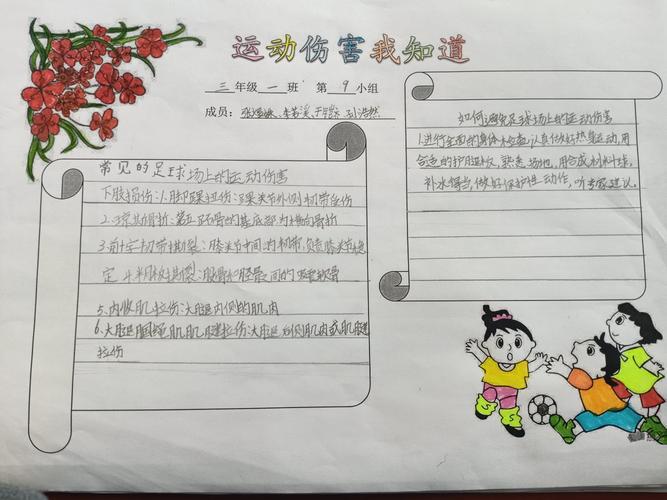 运动伤害我知道
三年级一班 第9小组
成员: 孙浩然
常见的足球场上的运动伤害
下肢损伤:1.脚踝拉伤:踝关节外侧韧带拉伤
2.琼斯骨折:第五跖骨的基底部为横向骨折
3.前十字韧带撕裂:膝关节中间的韧带,负责膝关节稳
定 4.半月板撕裂:股骨和胫骨之间的 软骨
5.内收肌拉伤:大腿内侧的肌肉
6.大腿腘绳肌肌腱拉伤:大腿后侧肌肉或肌腱
拉伤
如何避免足球场上的运动伤害
1.进行全面的身体检查,认真做好热身运动,用
合适的护腿板,熟悉场地,用合成材料球,
补水得当,做好保护性动作,听专家建议。